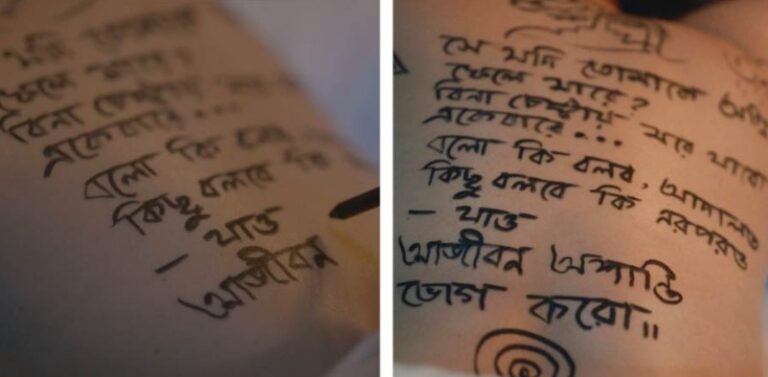 যদি তোমাকে
ফেলে মারে?
বিনা চেষ্টায়
একেবারে...
বলো কি বলব,
কিছু বলবে কি
– যাও
আজীবন
সে যদি তোমাকে
ফেলে মারে?
বিনা চেষ্টায় মরে যাবো
একেবারে...
বলো কি বলব, আদালত
কিছু বলবে কি এরপরও
– যাও
আজীবন অশান্তি
ভোগ করো॥